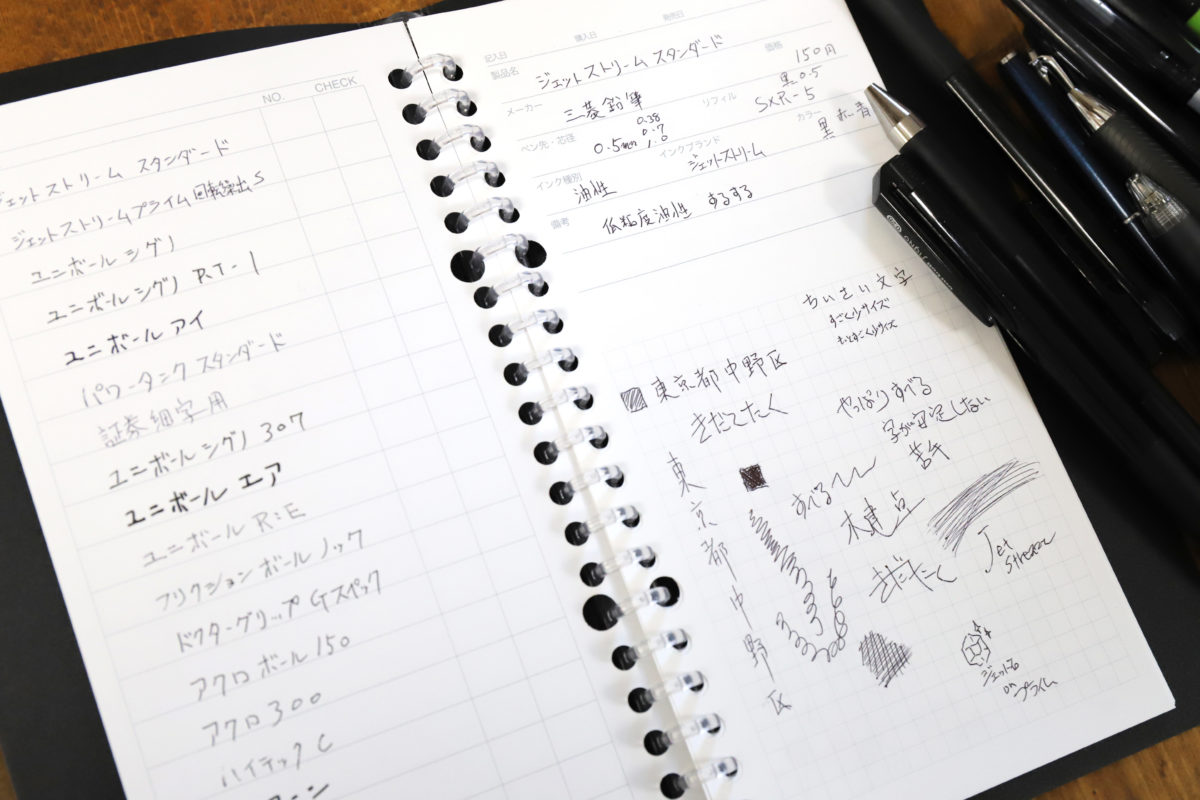 NO.
CHECK
ジェットストリーム スタンダード
ジェットストリームプライム回転繰出S
ユニボール シグノ
ユニボールシグノ RT-1
ユニボール アイ
パワータンク スタンダード
証券細字用
ユニボール シグノ 307
ユニボール エア
ユニボール R:E
フリクションボールノック
ドクターグリップ Gスペック
アクロボール 150
アクロ 300
ハイテック C
記入日
購入日
発売日
製品名
ジェットストリーム スタンダード
価格
150円
メーカー
三菱鉛筆
リフィル
黒0.5
SXR-5
ペン先・芯径
0.5mm
0.38
0.7
1.0
インクブランド
ジェットストリーム
カラー
黒 赤 青
インク種別
油性
備考
低粘度油性 するする
ちいさい文字
すごく小サイズ
もっとすごく小サイズ
東京都中野区
きだてたく
やっぱりすべる
字が安定しない
苦手
東京都中野区
すべる〜〜
きだてたく
Jet
Stream
ジェットの
プライム